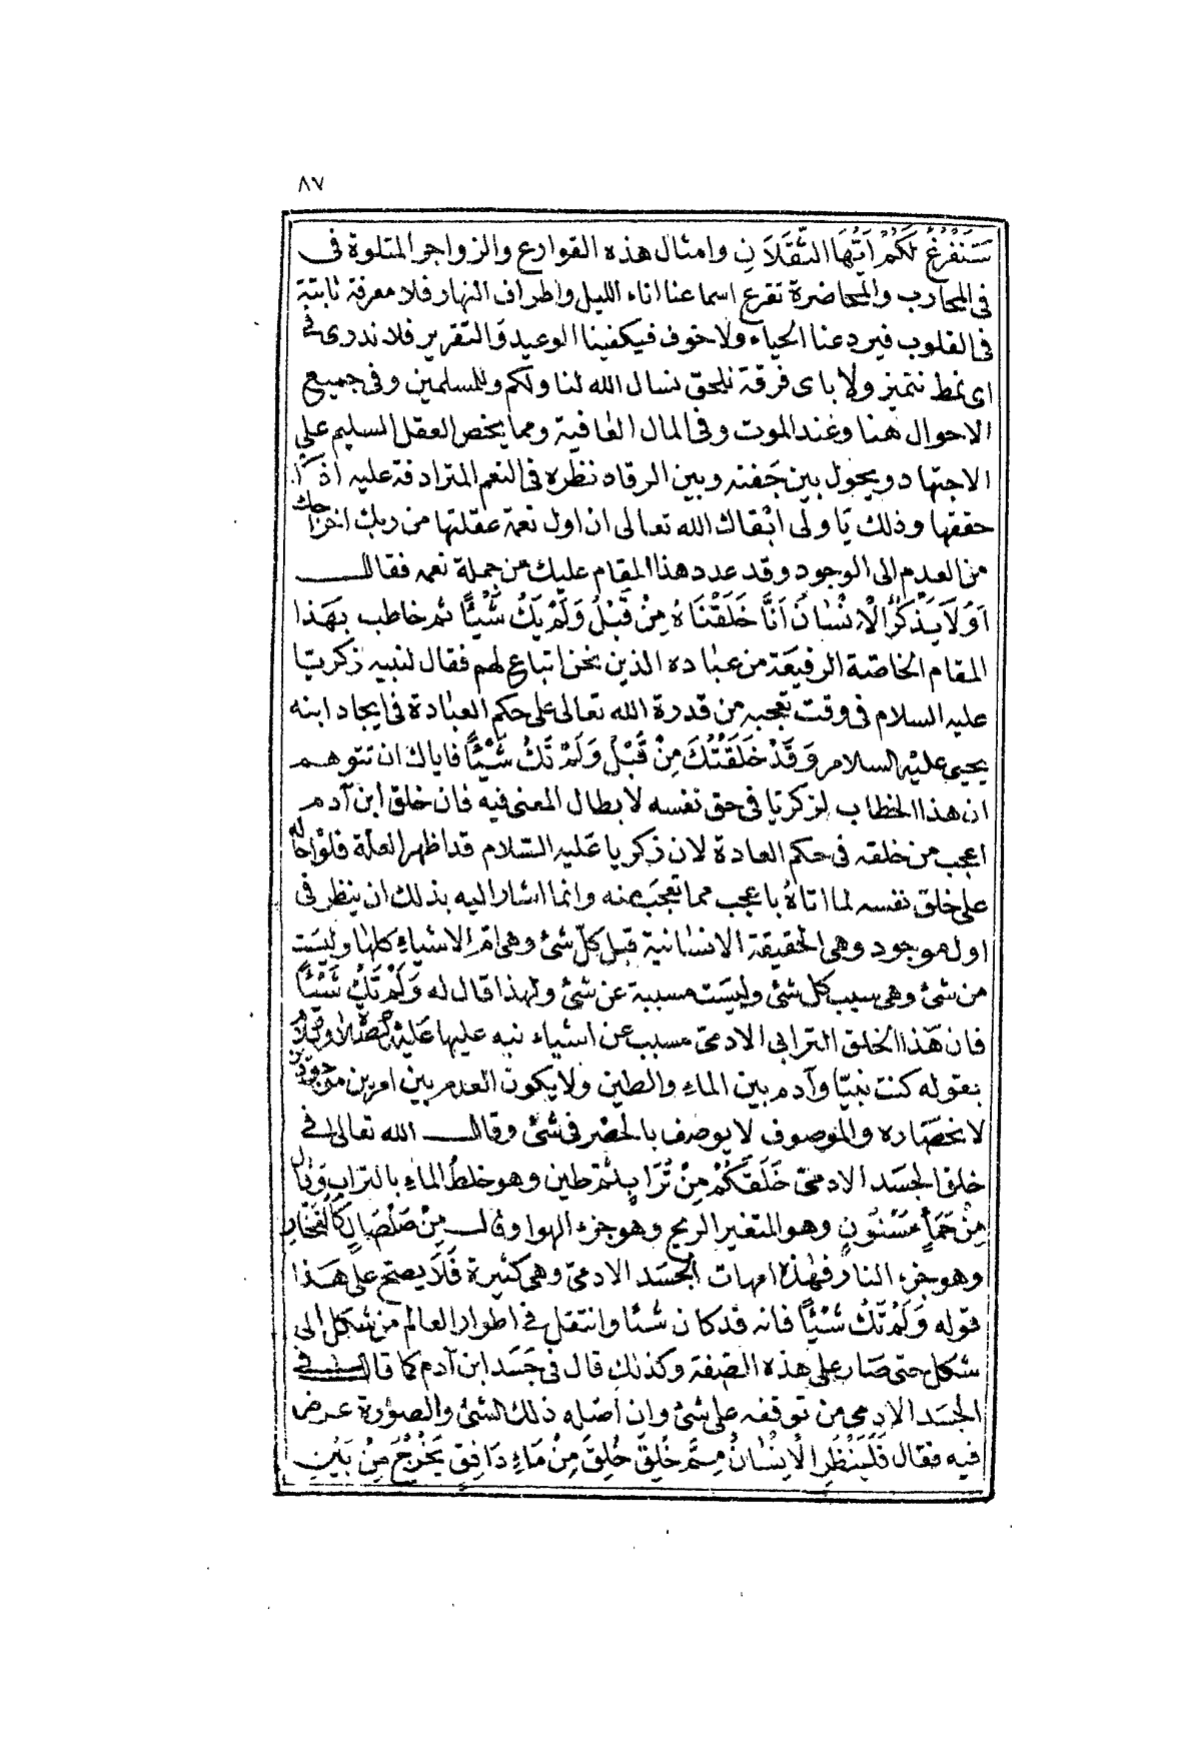 ٨٧
سَنَفْرُغُ لَكُمْ اَيُّهَا الثَّقَلَانِ وامثال هذه القوارع والزواجر المتلوة فى
فى المحارب والمحاضرة تقرع اسماعنا اناء الليل واطراف النهار فلا معرفة ثابتة
فى القلوب فيردعنا الحياء ولا خوف فيكفينا الوعيد والتقرير فلا ندرى فى
اى نمط نتميز ولا باى فرقة نلحق نسال الله لنا ولكم وللمسلمين وفى جميع
الاحوال هنا وعند الموت وفى المال العافية ومما يخص العقل السليم على
الاجتهاد ويحول بين جفنه وبين الرقاد نظره فى النعم المترادفة عليه اذا
حققها وذلك يا ولى ابقاك الله تعالى ان اول نعمة عقلتها من ربك اخراجك
من العدم الى الوجود وقد عدد هذا المقام عليك من جملة نعمه فقال
اَوَلَا يَذْكُرُ الْاِنْسَانُ اَنَّا خَلَقْنَاهُ مِنْ قَبْلُ وَلَمْ يَكُ شَيْئًا ثم خاطب بهذا
المقام الخاصة الرفيعة من عباده الذين نحن اتباع لهم فقال لنبيه زكريا
عليه السلام فى وقت تعجبه من قدرة الله تعالى على حكم العبادة فى ايجاد ابنه
يحيى عليه السلام وَقَدْ خَلَقْتُكَ مِنْ قَبْلُ وَلَمْ تَكُ شَيْئًا فاياك ان تتوهم
ان هذا الخطاب لزكريا فى حق نفسه لابطال المعنى فيه فان خلق ابن آدم
اعجب من خلقه فى حكم العادة لان زكريا عليه السلام قد اظهر العلة فلو احاله
على خلق نفسه لما اتاه باعجب مما تعجب منه وانما اشار اليه بذلك ان ينظر فى
اول موجود وهى الحقيقة الانسانية قبل كل شئ وهى ام الاشياء كلها وليست
من شئ وهى سبب كل شئ وليست مسببة عن شئ ولهذا قال له وَلَمْ تَكُ شَيْئًا
فان هذا الخلق الترابى الادمى مسبب عن اشياء نبه عليها عليه
بقوله كنت نبيّا وآدم بين الماء والطين ولا يكون العدم بين امرين موجودين
لانحصاره والموصوف لا يوصف بالحصر فى شئ وقال الله تعالى فى
خلق الجسد الادمى خَلَقَكُمْ مِنْ تُرَابٍ ثم من طين وهو خلط الماء بالتراب وقال
مِنْ حَمَأٍ مَسْنُونٍ وهو المتغير الريح وهو جزء الهوا وقال مِنْ صَلْصَالٍ كَالْفَخَّارِ
وهو جزء النار فهذه امهات الجسد الادمى وهى كثيرة فلا يصح على هذا
قوله وَلَمْ تَكُ شَيْئًا فانه قد كان شئا وانتقل فى اطوار العالم من شكل الى
شكل حتى صار على هذه الصفة وكذلك قال فى جسد ابن آدم كما قال فى
الجسد الادمى من توقفه على شئ وان اصله ذلك الشئ والصورة عرض
فيه فقال فَلْيَنْظُرِ الْاِنْسَانُ مِمَّ خُلِقَ خُلِقَ مِنْ مَاءٍ دَافِقٍ يَخْرُجُ مِنْ بَيْنِ